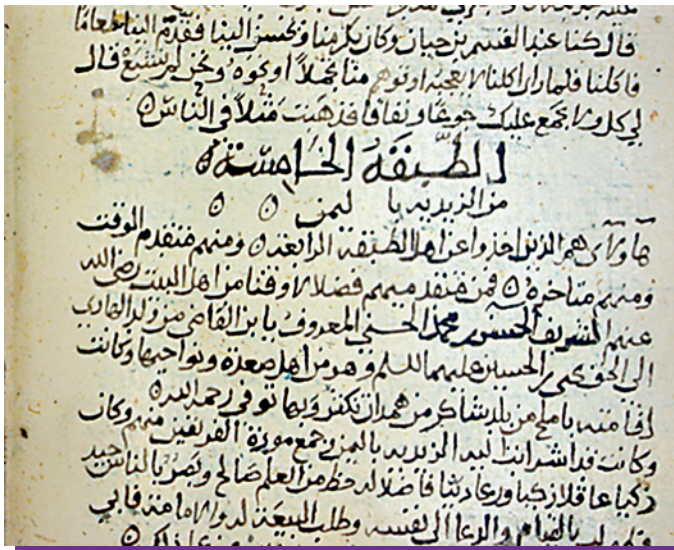 قال كنا عند القسم بن حيان وكان يكرمنا ويحسن الينا فقدم الينا طعاما
فاكلنا فلما راى اكلنا لا يعجبه او توهم منا تجملا او نحوه ونحن لم نشبع قال
لي كل ولا تجمع عليك جوعا ونفاقا فذهبت مثلا في الناس ٥
الطبقة الخامسة ٥
من الزيدية با ليمن ٥ ٥
هاولاى هم الذين اخذوا عن اهل الطبقة الرابعة ٥ ومنهم متقدم الوقت
ومنهم متاخره ٥ فمن متقدميهم فضلا ووقتا من اهل البيت رضي الله
عنهم الشريف الحسن بن محمد الحسني المعروف با بن القاضي من ولد الهادي
الى الحق يحيى بن الحسين عليهما السلم وهو من اهل صعدة ونواحيها وكانت
اقامته با ملح من بلد شاكر من همدان وبها توفي رحمه الله ٥
وكانت قد اشرابت اليه الزيدية باليمن وجمع مودة الفريقين منهم وكان
زكيا عاقلا زكيا ورعا دينا فاضلا له حظ من العلم صالح وبصر بالناس جيد
بالقيام والدعا الى نفسه وطلب البيعة له والامامة فابى